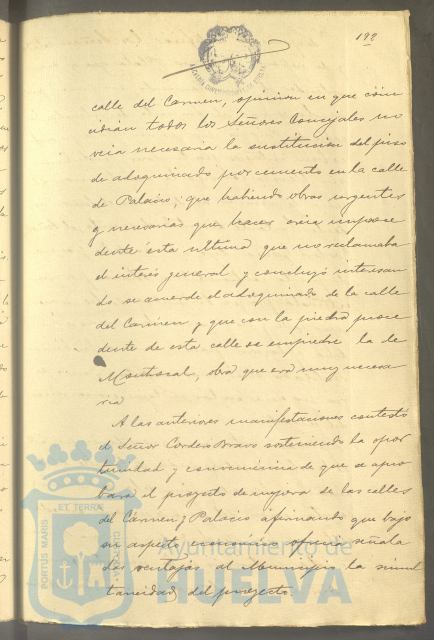 192
calle del Carmen, opinion en que coin
cidian todos los Señores Concejales no
veia necesaria la sustitucion del piso
de adoquinado por cemento en la calle
de Palacio; que habiendo obras urgentes
y necesarias que hacer creia improce
dente esta ultima que no reclamaba
el interés general y concluyó interesan
do se acuerde el adoquinado de la calle
del Carmen y que con la piedra proce
dente de esta calle se empiedre la de
Montrocal, obra que era muy necesa
ria
A las anteriores manifestaciones contestó
el Señor Cordero Bravo sosteniendo la opor
tunidad y conveniencia de que se apro
bara el proyecto de mejora de las calles
del Cármen y Palacio afirmando que bajo
su aspecto economico ofrecia señala
das ventajas al Municipio la simul
taneidad del proyecto.
PORTUS MARIS ET TERRAE CUSTODIO
Ayuntamiento de
HUELVA